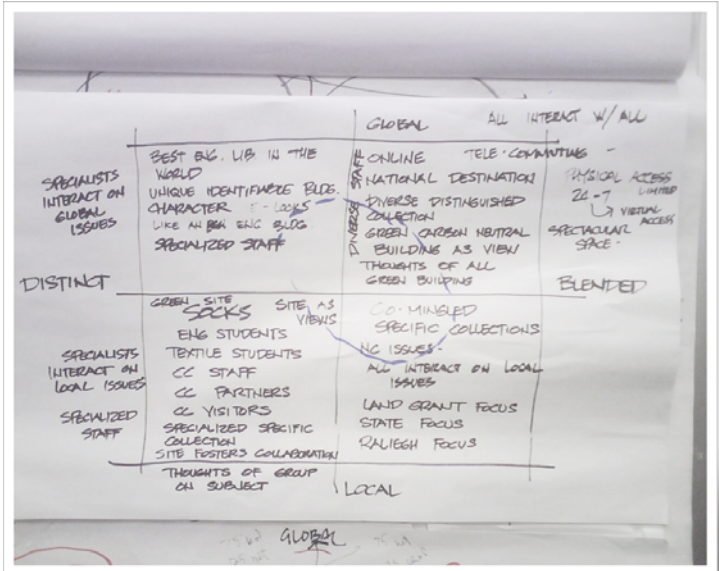 GLOBAL
ALL INTERACT W/ ALL
SPECIALISTS
INTERACT ON
GLOBAL
ISSUES
BEST ENG. LIB IN THE
WORLD
UNIQUE IDENTIFIABLE BLDG.
CHARACTER E-LOOKS
LIKE AN ENG BLDG.
SPECIALIZED STAFF
DIVERSE STAFF
ONLINE TELE-COMMUTING -
NATIONAL DESTINATION
DIVERSE DISTINGUISHED
COLLECTION
GREEN CARBON NEUTRAL
BUILDING AS VIEW
THOUGHTS OF ALL
GREEN BUILDING
PHYSICAL ACCESS
24-7 LIMITED
VIRTUAL
ACCESS
SPECTACULAR
SPACE.
DISTINCT
BLENDED
SPECIALISTS
INTERACT ON
LOCAL ISSUES
SPECIALIZED
STAFF
GREEN SITE
SOCKS
SITE AS
VIEWS
ENG STUDENTS
TEXTILE STUDENTS
CC STAFF
CC PARTNERS
CC VISITORS
SPECIALIZED SPECIFIC
COLLECTION
SITE FOSTERS COLLABORATION
THOUGHTS OF GROUP
ON SUBJECT
CO-MINGLED
SPECIFIC COLLECTIONS
NC ISSUES.
ALL INTERACT ON LOCAL
ISSUES
LAND GRANT FOCUS
STATE FOCUS
RALIEGH FOCUS
LOCAL
GLOBAL